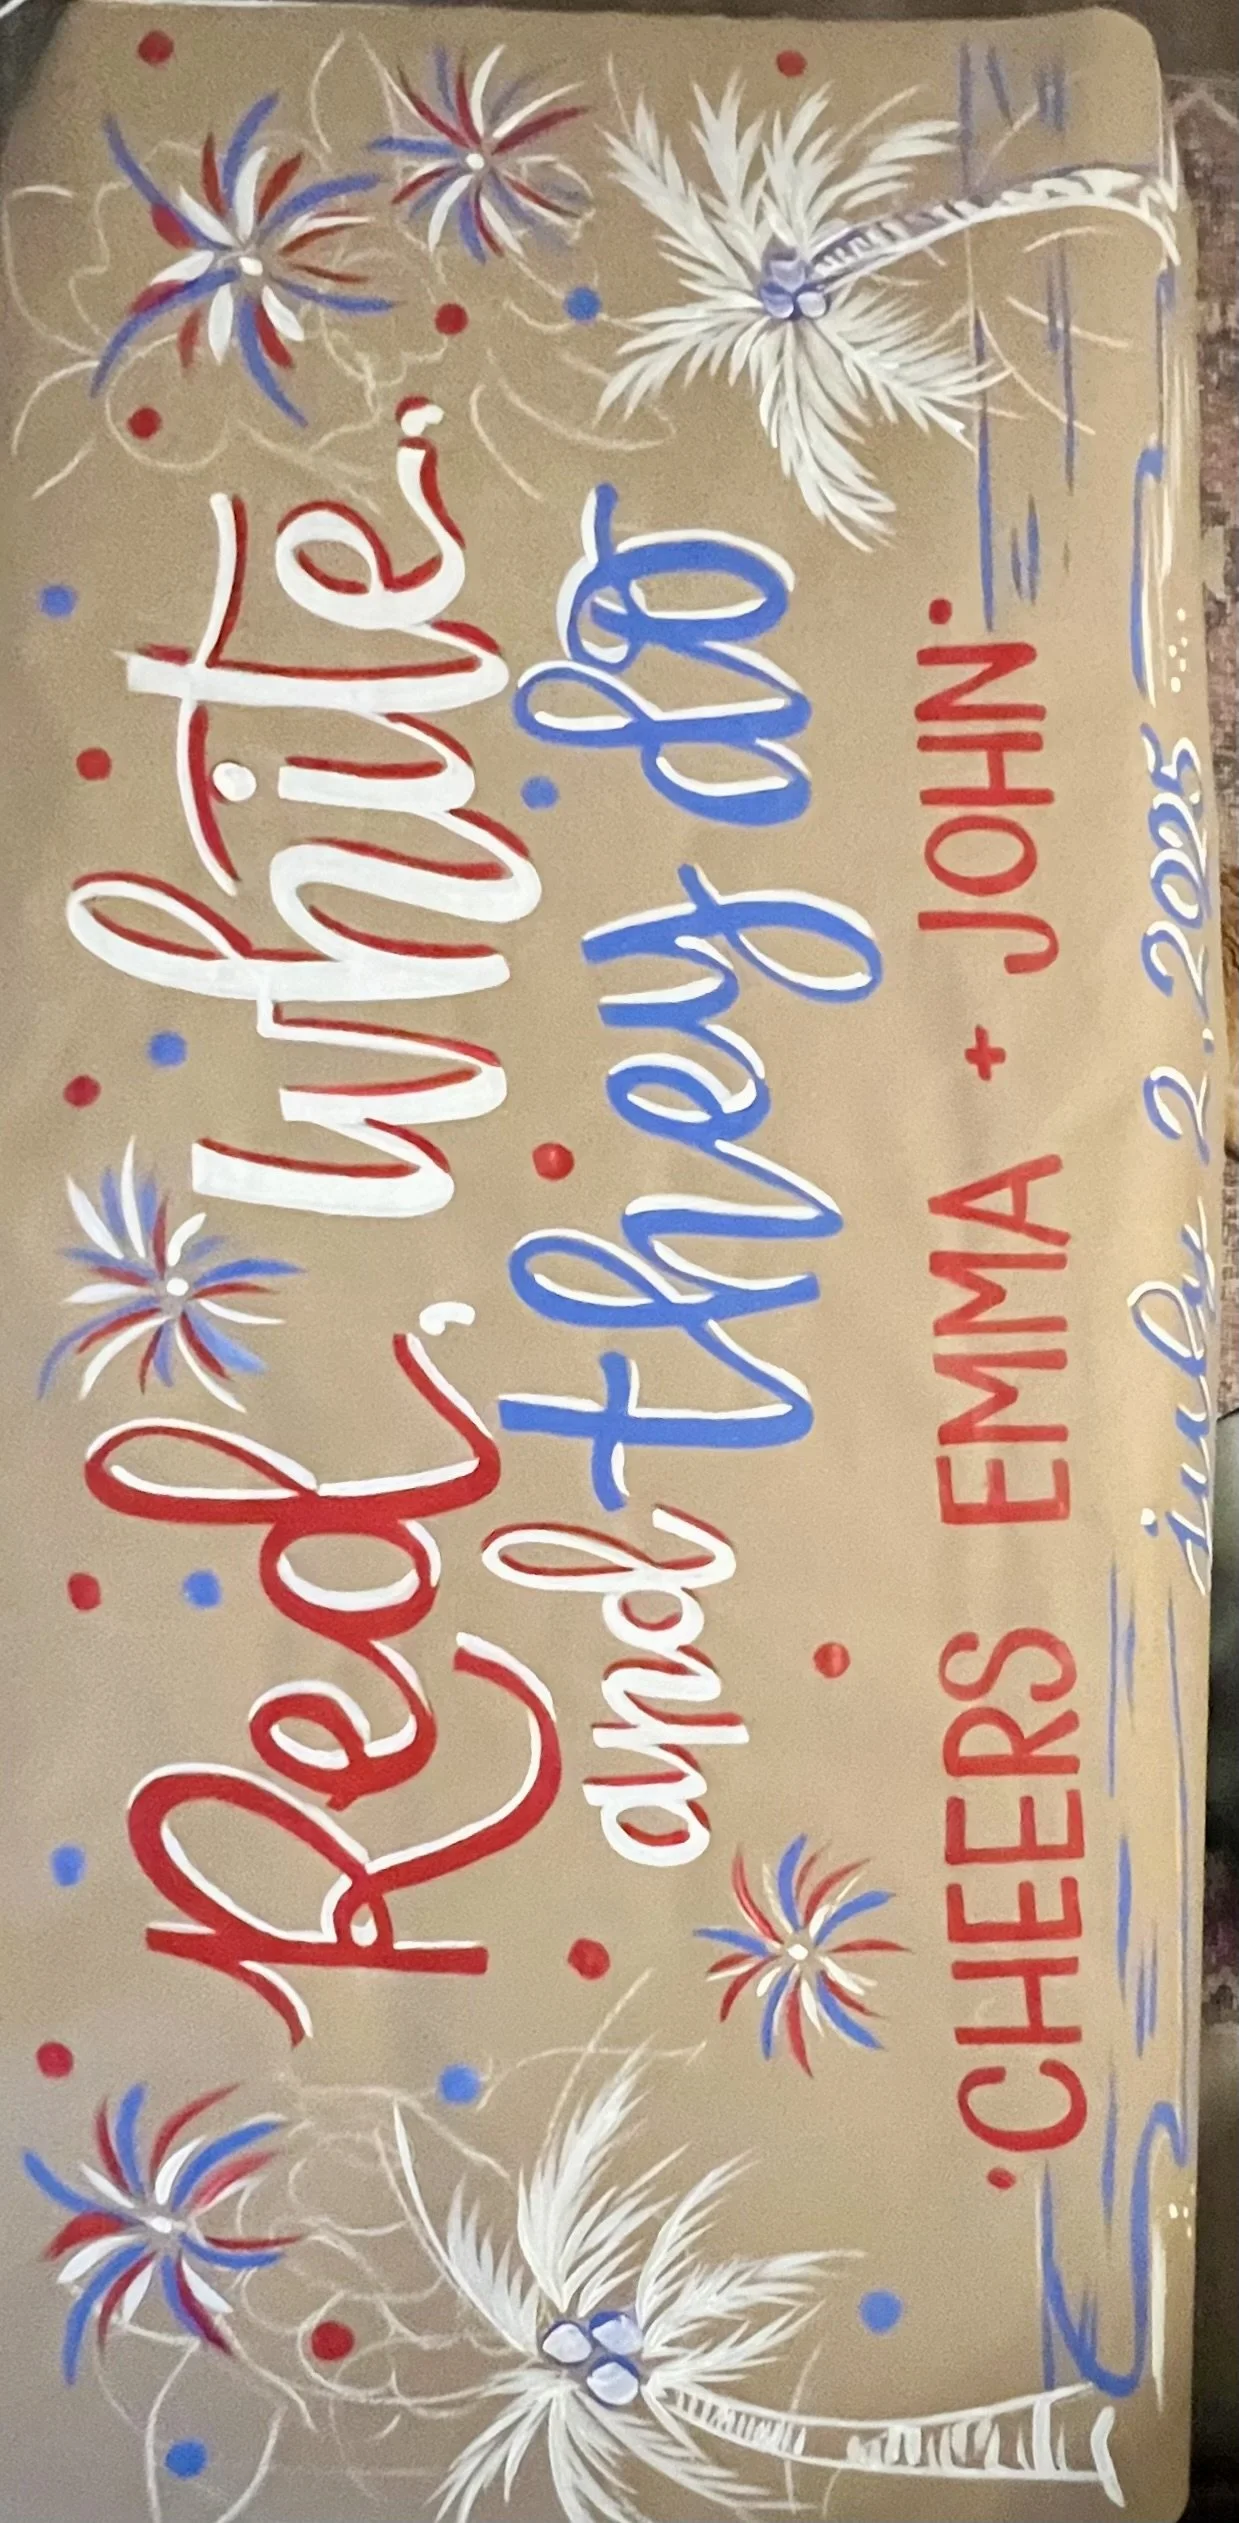 Red, white,
and they do
•CHEERS EMMA + JOHN•
july 2. 2025